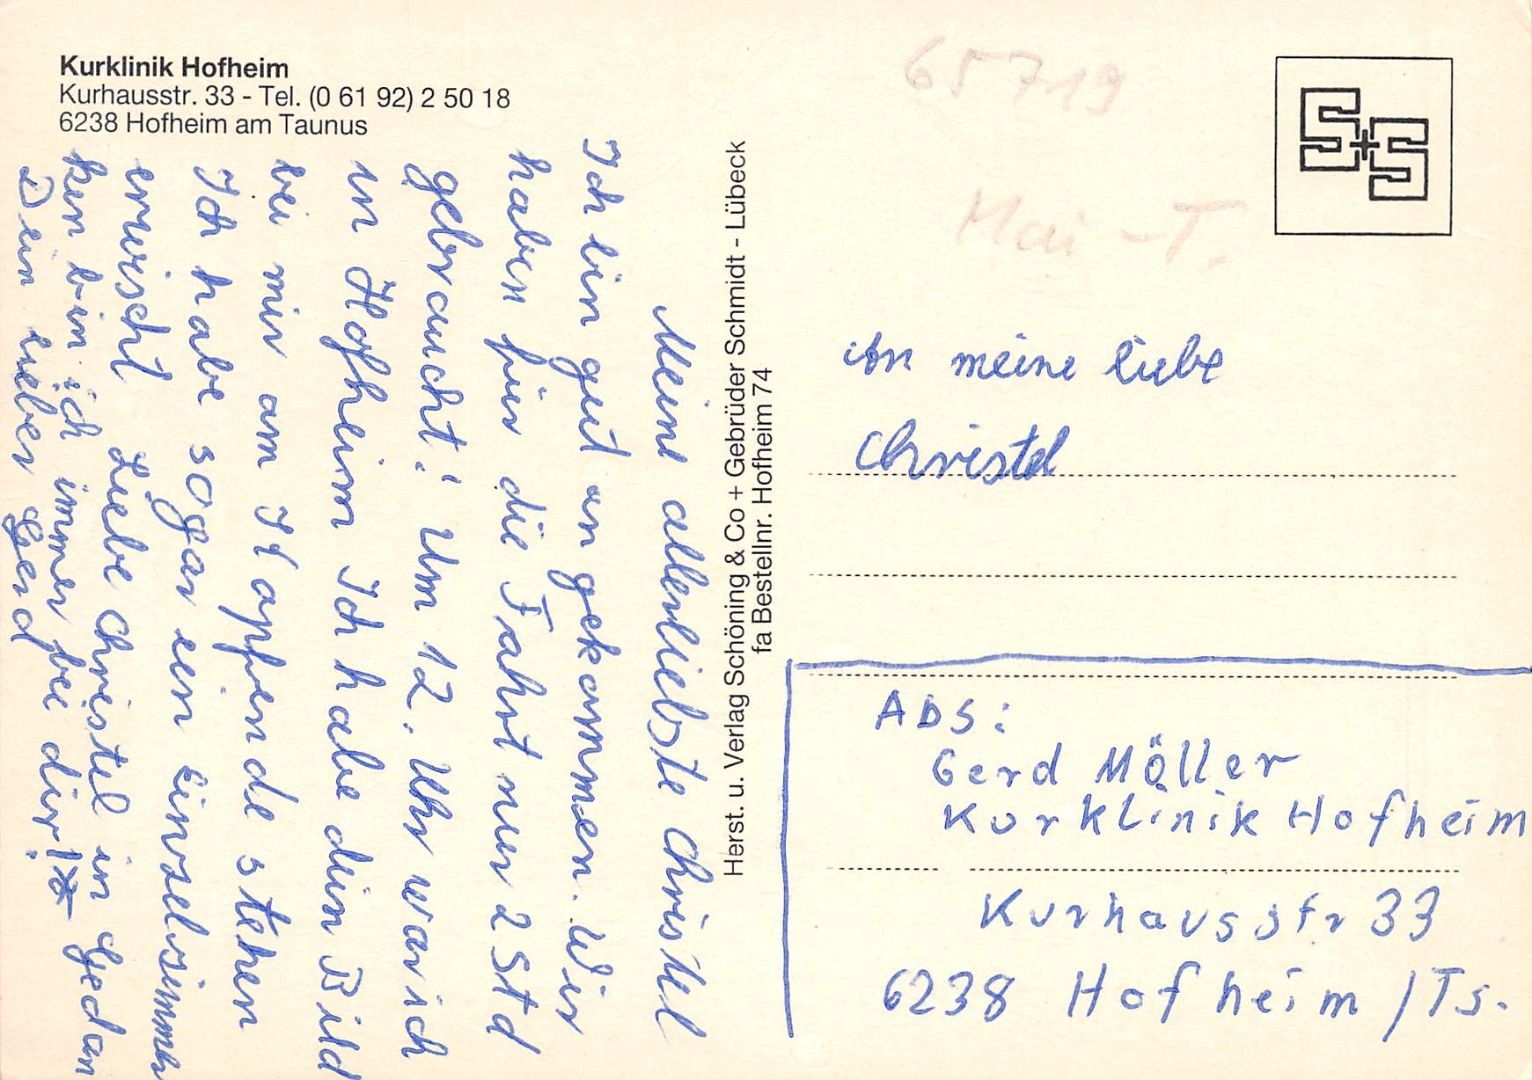 Kurklinik Hofheim
Kurhausstr. 33 - Tel. (0 61 92) 2 50 18
6238 Hofheim am Taunus
Meine allerliebste Christel
Ich bin gut an gekommen. Wir
haben für die Fahrt nur 2 Std
gebraucht! Um 12. Uhr war ich
in Hofheim Ich habe dein Bild
bei mir am Kopfende stehen
Ich habe sogar ein Einselsimmer
erwischt Liebe Christel in Gedan
ken bin ich immer bei dir!
Dein lieber Gerd
Herst. u. Verlag Schöning & Co + Gebrüder Schmidt - Lübeck
fa Bestellnr. Hofheim 74
65719
Mai - T.
S+S
An meine liebe
Christel
Abs:
Gerd Möller
Kurklinik Hofheim
Kurhausstr 33
6238 Hofheim / Ts.